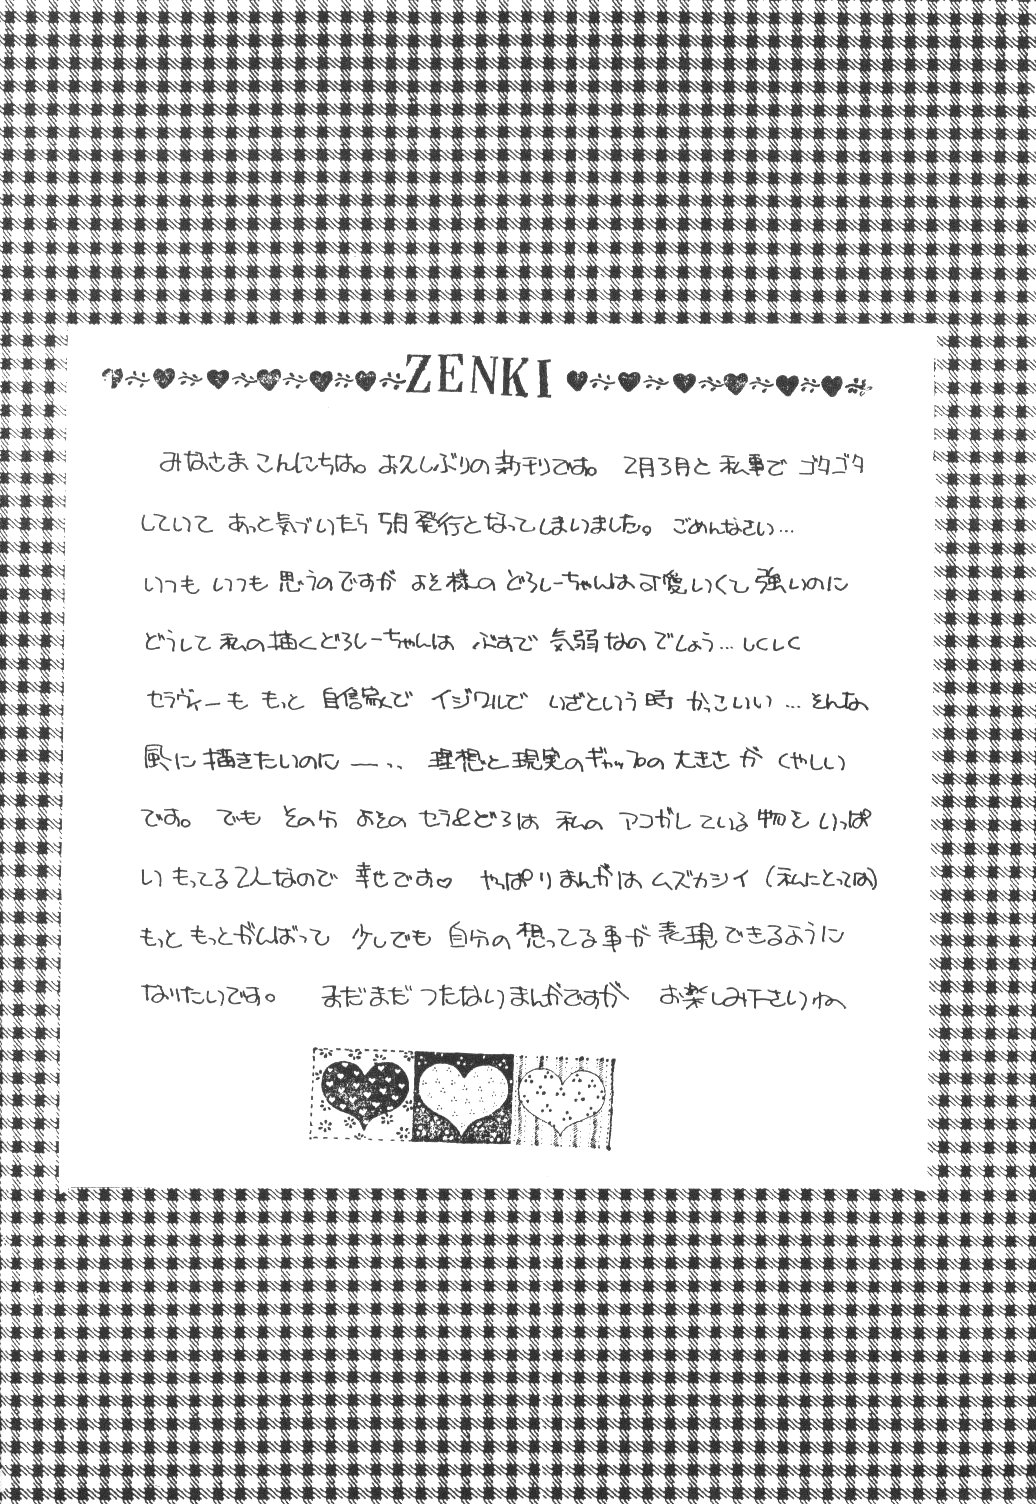 ZENKI
みなさまこんにちは。お久しぶりの新刊です。 2月3月と私事でゴタゴタ
していて あっと気づいたら5月発行となってしまいました。ごめんなさい…
いつもいつも思うのですが よそ様のどろしーちゃんは可愛いくて強いのに
どうして私の描くどろしーちゃんは ぶすで気弱なのでしょう…しくしく
セラヴィーももっと 自信家でイジワルで いざという時かっこいい…そんな
風に描きたいのにー… 理想と現実のギャップの大きさがくやしい
です。 でもその分よそのセラ&どろは 私のアコガレている物をいっぱ
いもってる2人なので 幸せです♡ やっぱりまんがはムズカシイ(私にとっては)
もっともっとがんばって 少しでも自分の想ってる事が表現できるように
なりたいです。 まだまだつたないまんがですが お楽しみ下さいね